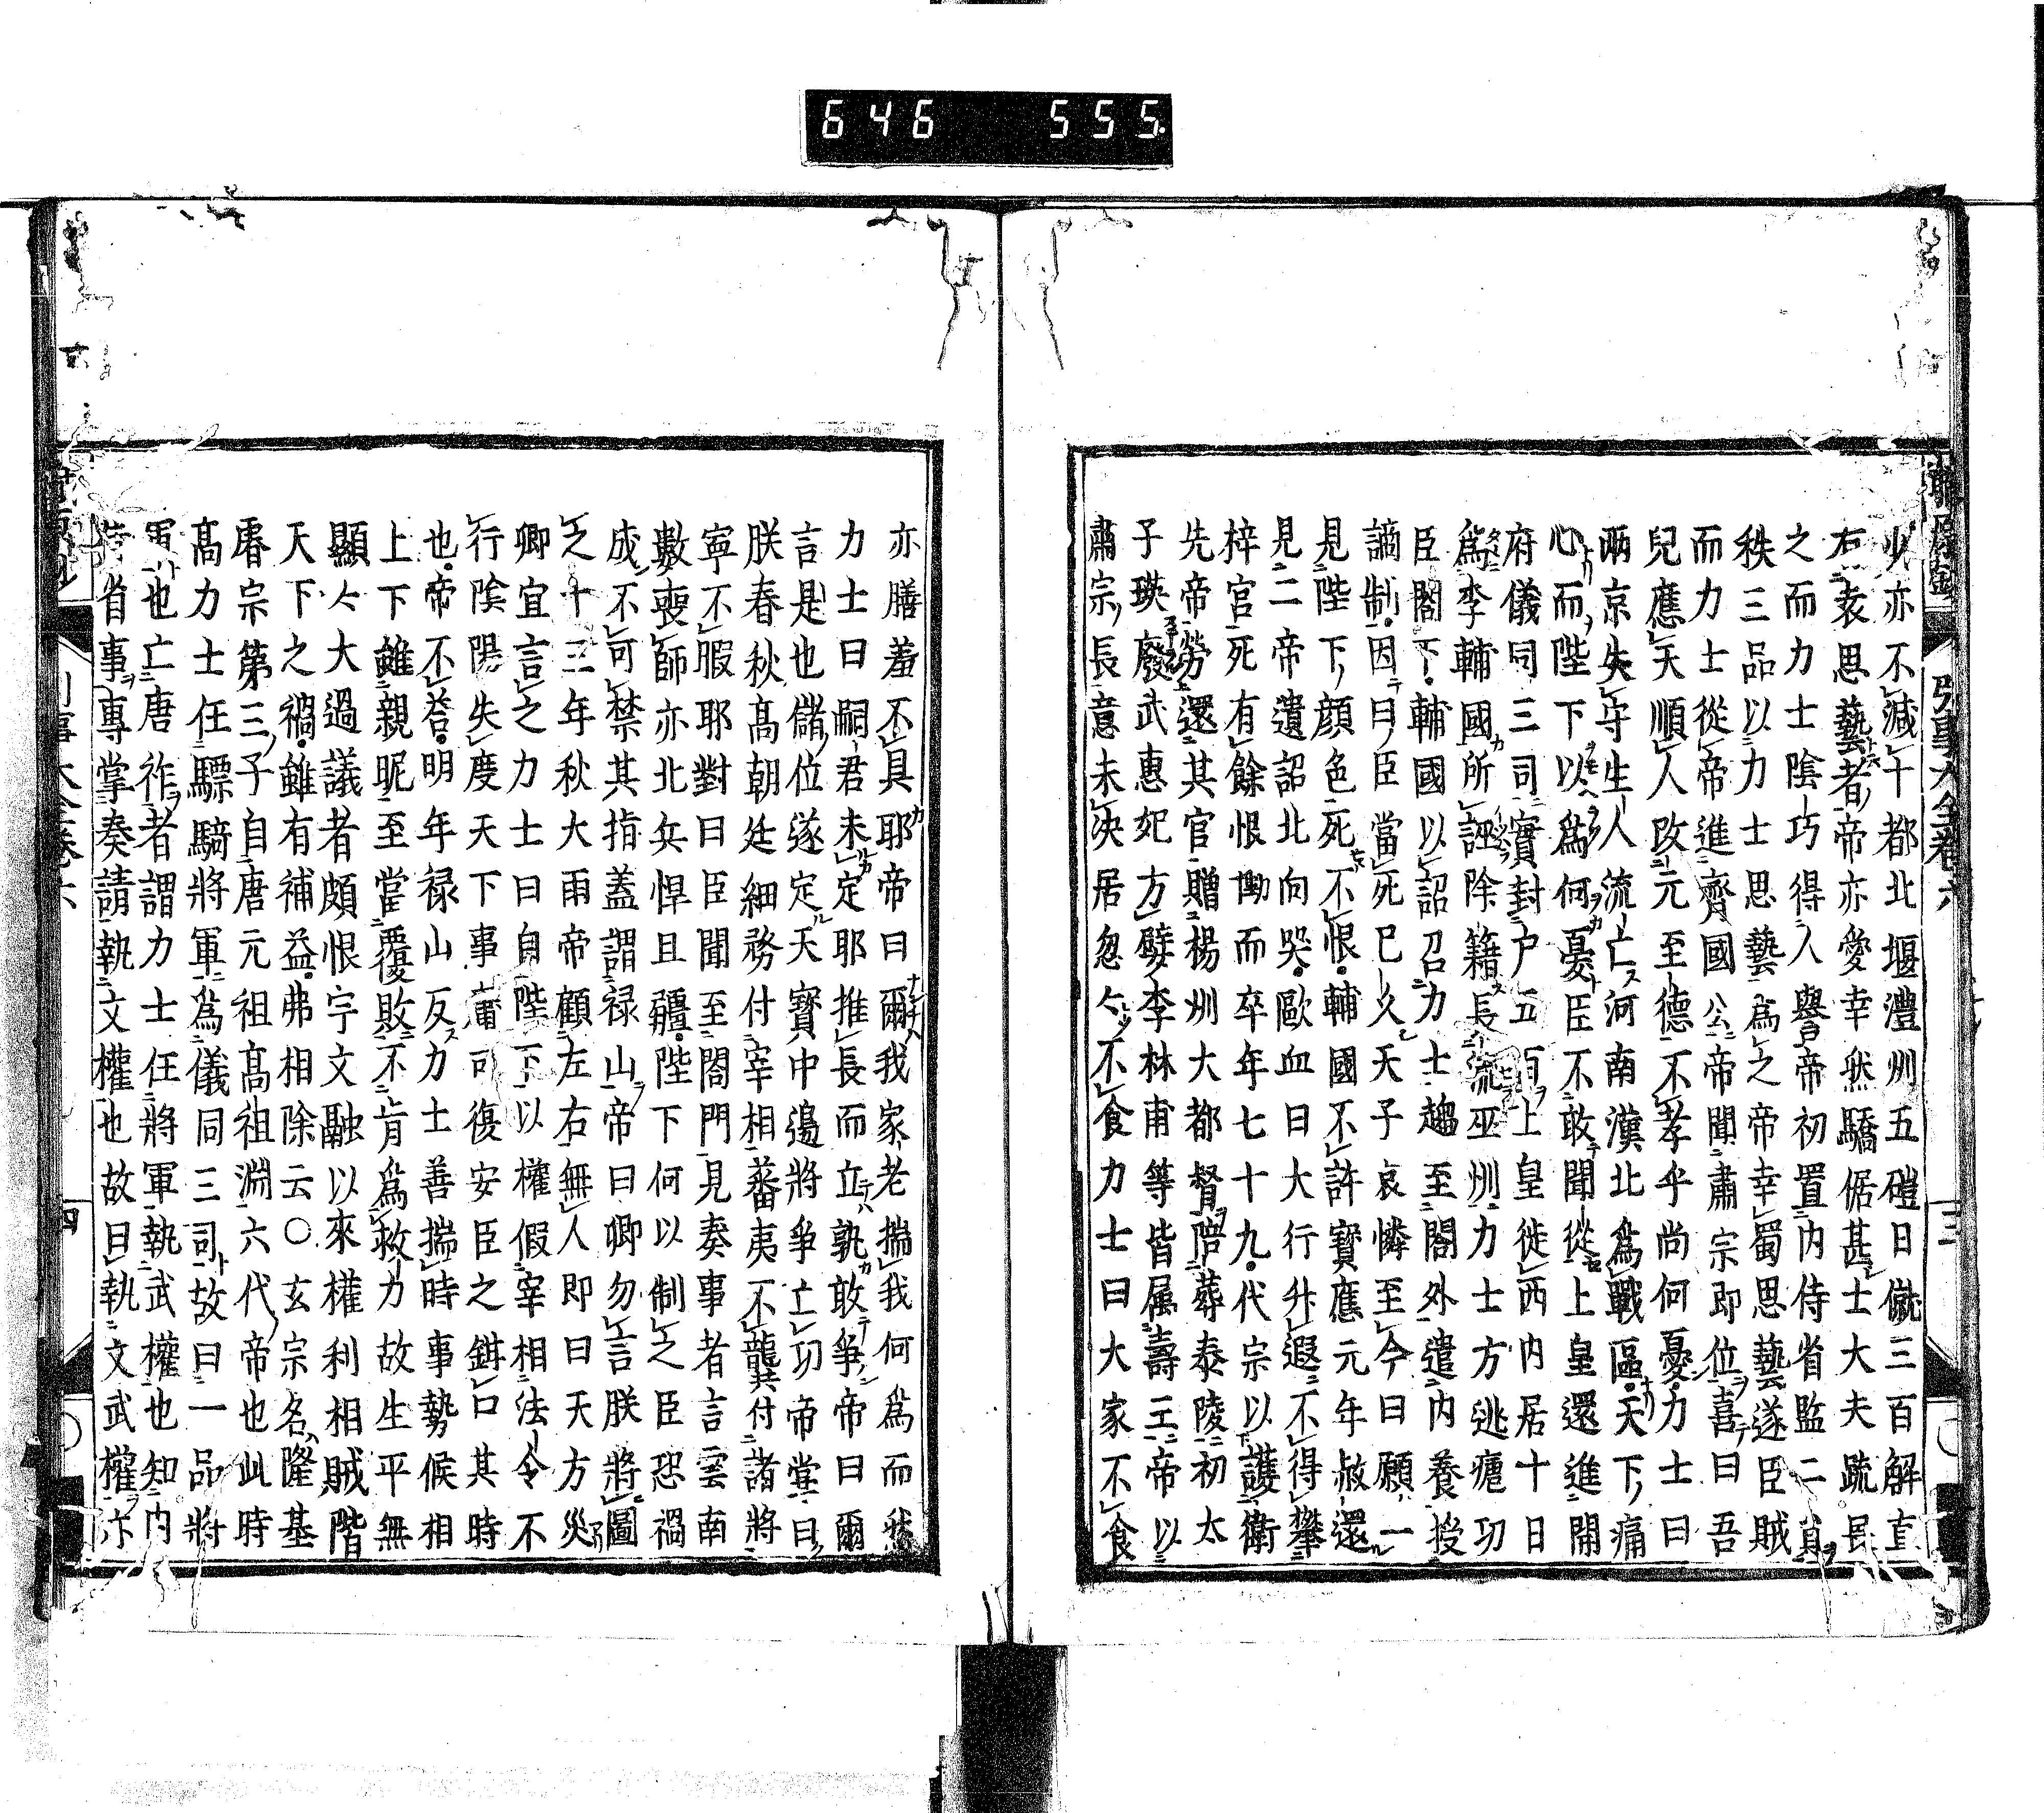 646 555
引事大全卷六
少亦不減十都北堰灃州五磑日僦三百解直
右袁思藝者帝亦愛幸然驕倨甚士大夫疏畏
之而力士陰巧得人譽帝初置内侍省監二員
秩三品以力士思藝爲之帝幸蜀思藝遂臣賊
而力士從帝進齊國公帝聞肅宗即位喜曰吾
兒應天順人改元至德不孝乎尚何憂力士曰
兩京失守生人流亡河南漢北爲戰區天下痛
心而陛下以爲何憂臣不敢聞從上皇還進開
府儀同三司實封户五百上皇徙西内居十日
爲李輔國所誣除籍長流巫州力士方逃瘧功
臣閣下輔國以詔召力士趨至閣外遣内養授
謫制因曰臣當死已久天子哀憐至今日願一
見陛下顔色死不恨輔國不許寶應元年赦還
見二帝遺詔北向哭歐血曰大行升遐不得攀
梓宮死有餘恨慟而卒年七十九代宗以護衛
先帝勞還其官贈楊州大都督陪葬泰陵初太
子瑛廢武惠妃方嬖李林甫等皆属壽王帝以
肅宗長意未決居忽々不食力士曰大家不食
亦膳羞不具耶帝曰爾我家老揣我何爲而然
力士曰嗣君未定耶推長而立孰敢爭帝曰爾
言是也儲位遂定天寶中邊將爭立功帝嘗曰
朕春秋高朝廷細務付宰相蕃夷不龔付諸將
寧不暇耶對曰臣聞至閤門見奏事者言雲南
數喪師亦北兵悍且彊陛下何以制之臣恐禍
成不可禁其指蓋謂禄山帝曰卿勿言朕將圖
之十三年秋大雨帝顧左右無人即曰天方災
卿宜言之力士曰自陛下以權假宰相法令不
行陰陽失度天下事庸可復安臣之鉗口其時
也帝不荅明年禄山反力士善揣時事勢候相
上下雖親昵至當覆敗不肯爲救力故生平無
顯々大過議者頗恨宇文融以來權利相賊階
天下之禍雖有補益弗相除云○玄宗名隆基
睿宗第三子自唐元祖高祖淵六代帝也此時
高力士任驃騎將軍爲儀同三司故曰一品將
軍也亡唐祚者謂力士任將軍執武權也知内
侍省事專掌奏請執文權也故曰執文武權亦
四